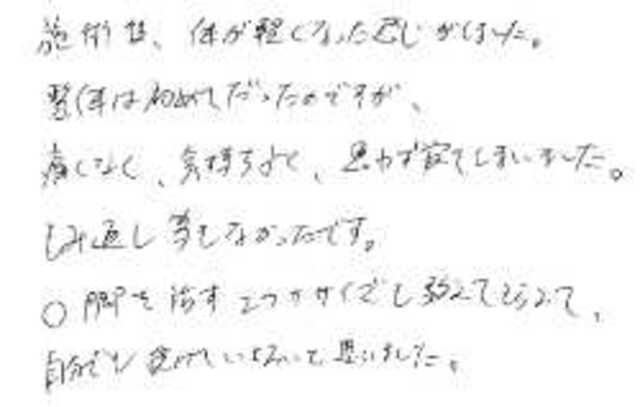 施術後、体が軽くなった感じがしました。
整体は初めてだったのですが、
痛くなく、気持ちよく、思わず寝てしまいました。
もみ返し等もなかったです。
○脚を治すエクササイズも教えてもらえて、
自分でも 続けていきたいと思いました。